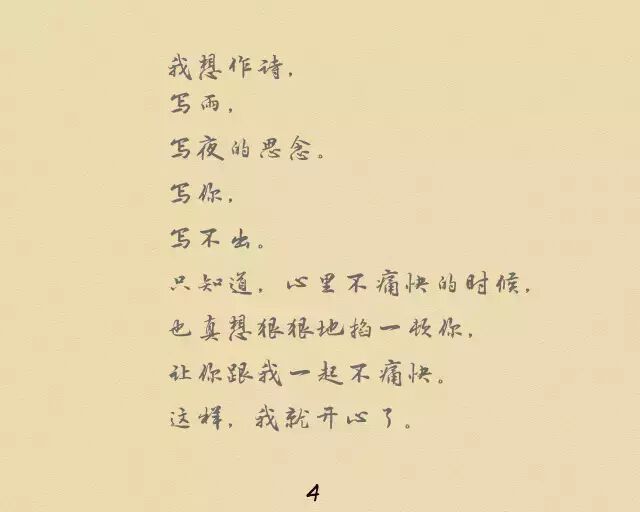 我想作诗，
写雨，
写夜的思念。
写你，
写不出。
只知道，心里不痛快的时候，
也真想狠狠地掐一顿你，
让你跟我一起不痛快。
这样，我就开心了。
4